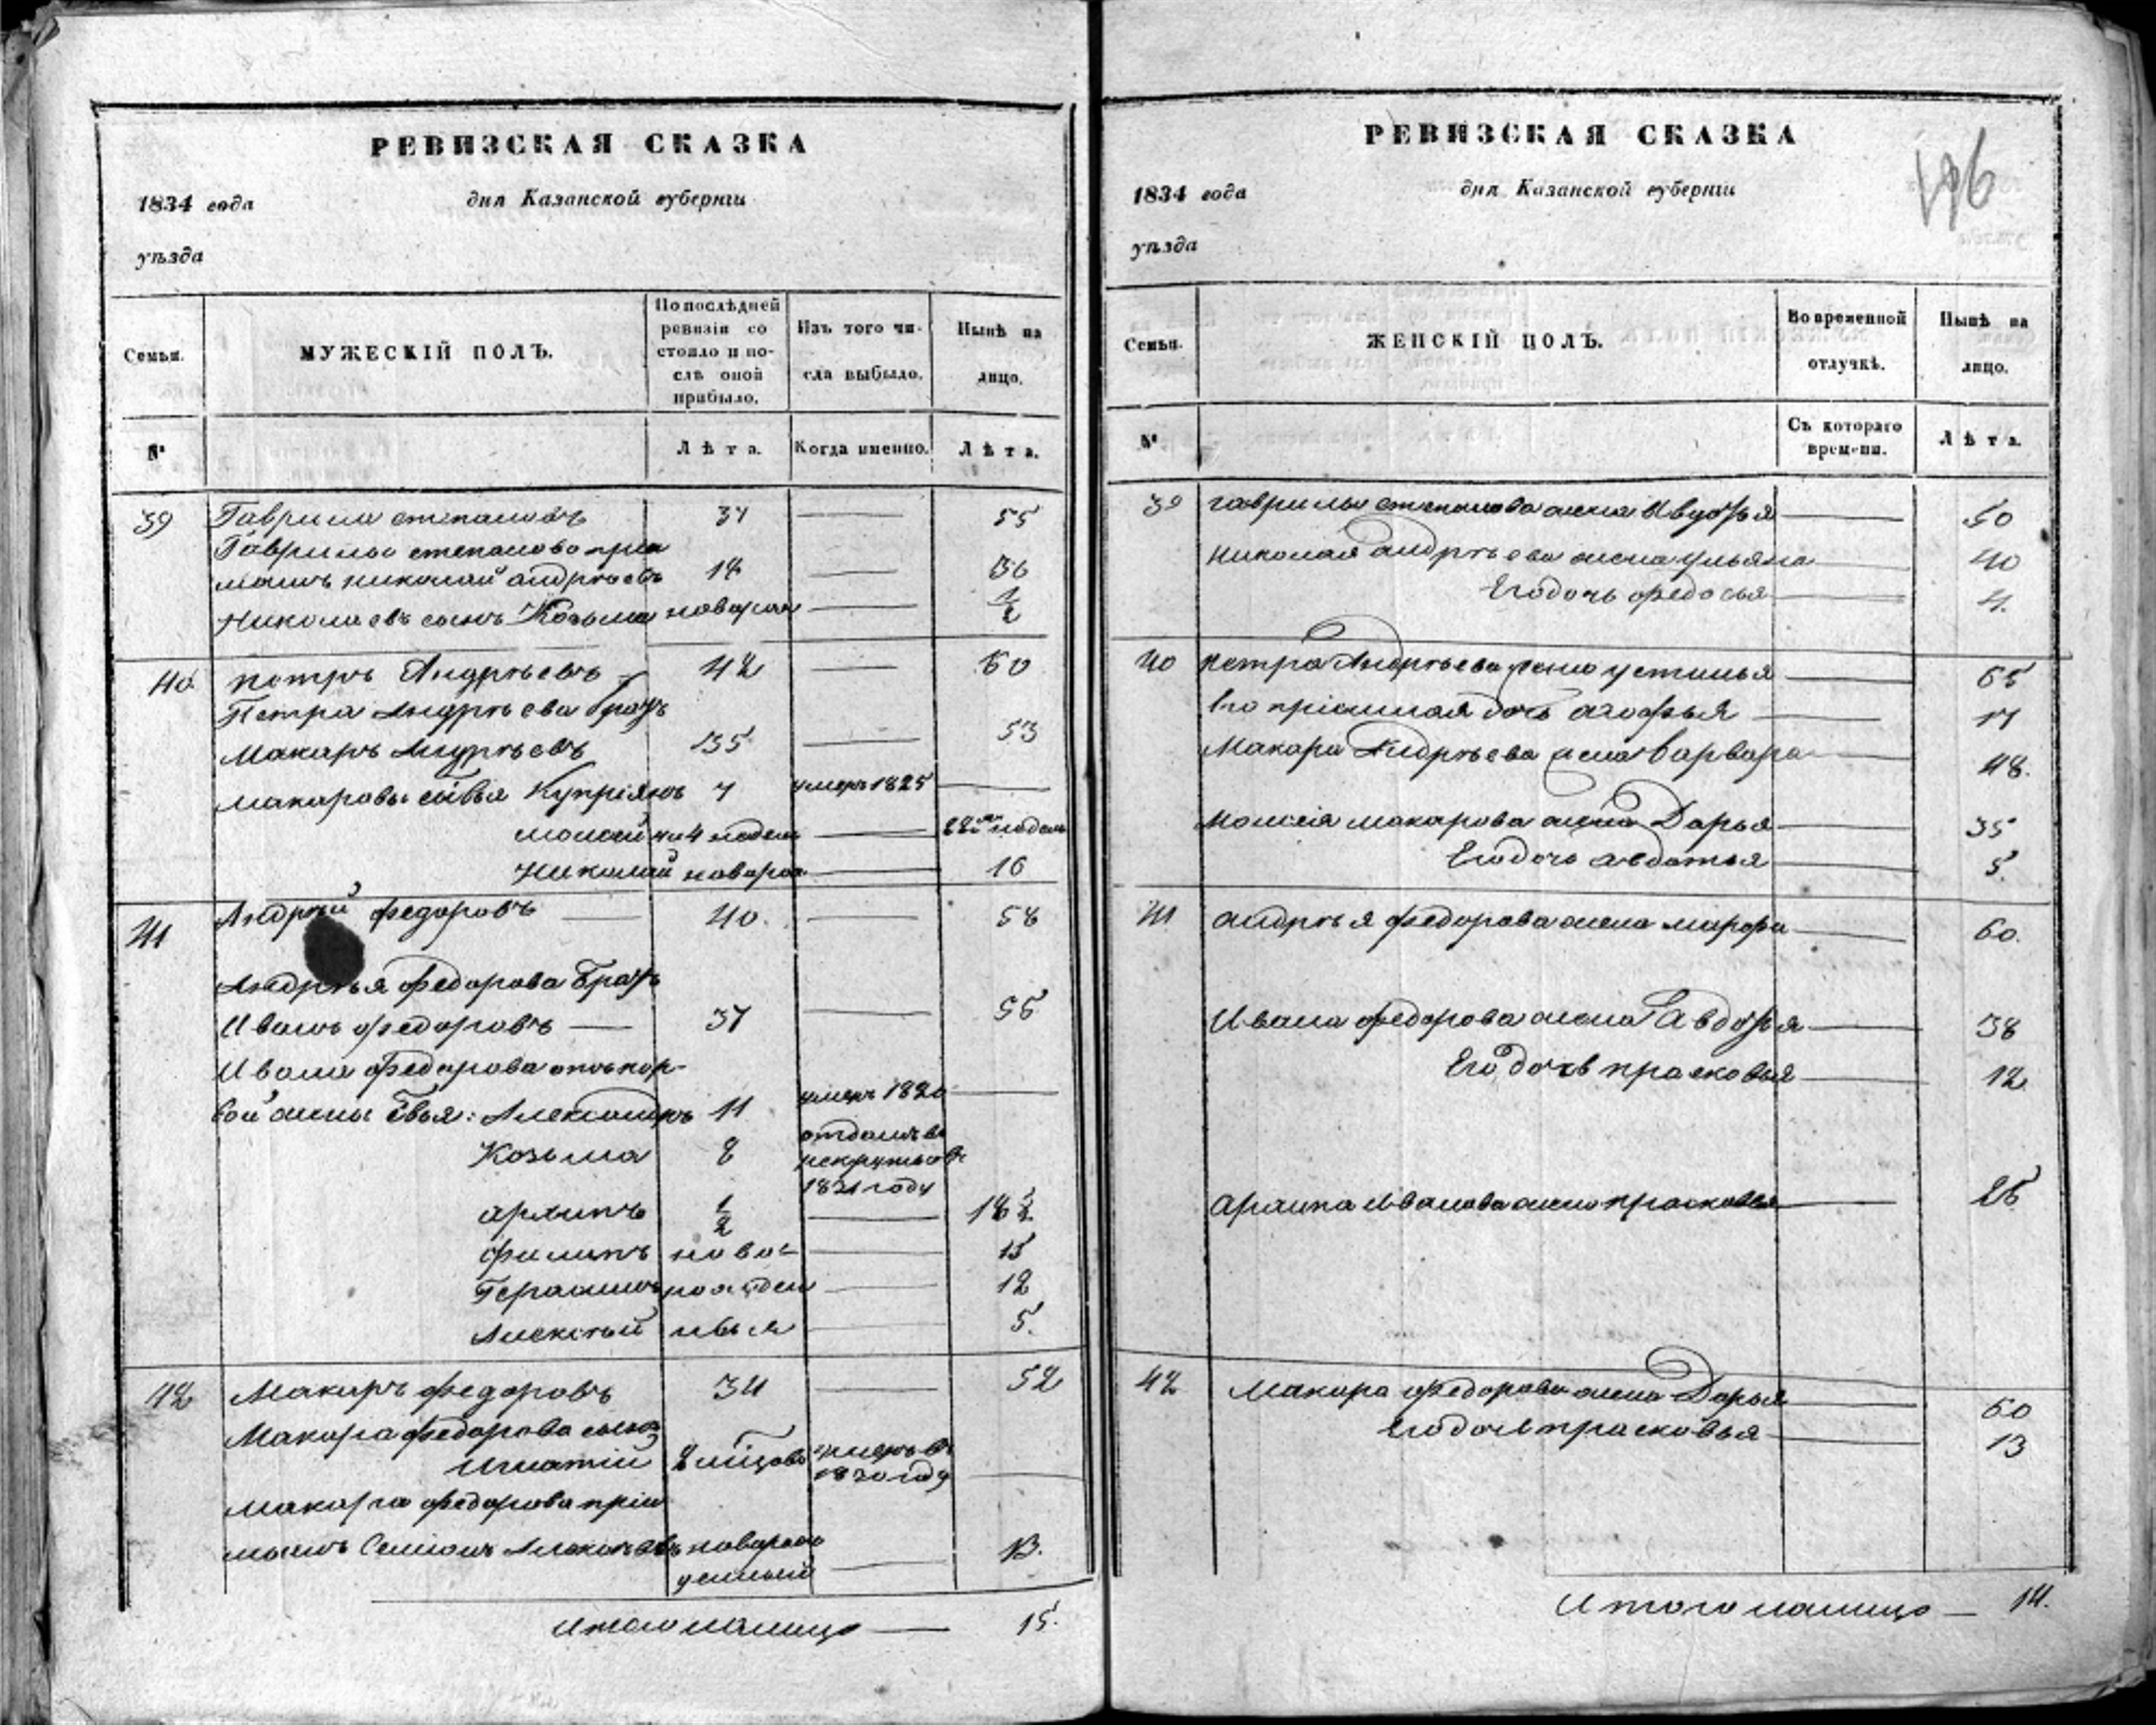 РЕВИЗСКАЯ СКАЗКА
1834 года
дня Казанской губернiи
уѣзда
Семьи.
МУЖЕСКIЙ ПОЛЪ.
По послѣдней
ревизiи со
стояло и по-
слѣ оной
прибыло.
Изъ того чи-
сла выбыло.
Нынѣ на
лицо.
№
Лѣта.
Когда именно.
Лѣта.
39 Гаврила степановъ 37 55
Гаврилы степанова прiи
мышъ николай андрѣевъ 18 36
Николаевъ сынъ Козьма новорож 1/2
40 петръ Андрѣевъ 42 60
Петра Андрѣева братъ
Макаръ Андрѣевъ 35 53
макаровы сыновья Купрiянъ 7 умеръ 1825
моисей 4 недель
Николай новорож 16
41 Андрей федоровъ 40. 58
Андрѣя федорова братъ
Иванъ федоровъ 37 55
Ивана федорова отъ пер-
вой жены Александръ 11 умеръ 1820
Козьма 8 отданъ въ
рекруты въ
1821 году
архипъ 1/2 18 1/2
филипъ ново- 15
Герасимъ рожден 12
Алексѣй ныя 5.
42 Макаръ федоровъ 34 52
Макара федорова сынъ
Игнатiй умеръ въ
1820 году
макара федорова прiи
мышъ Семионъ новорож
денный 13.
Итого налицо 15.
РЕВИЗСКАЯ СКАЗКА
1834 года
дня Казанской губернiи
уѣзда
196
Семьи.
ЖЕНСКIЙ ПОЛЪ.
Во временной
отлучкѣ.
Нынѣ на
лицо.
№
Съ котораго
времени.
Лѣта.
39 гаврилы степанова жена 50
николая андрѣева жена ульяна 40
Его дочь федосья 4.
40 петра Андрѣева жена устинья 65
его прiимная дочь агафья 17
Макара Андрѣева жена варвара 48.
моисея макарова жена Дарья 35
Его дочь авдотья 5.
41 андрѣя федорова жена марфа 60.
Ивана федорова жена Авдотья 38
Его дочь прасковья 12
архипа Иванова жена прасковья 25
42 Макара федорова жена Дарья 50
Его дочь прасковья 13
Итого налицо 14.